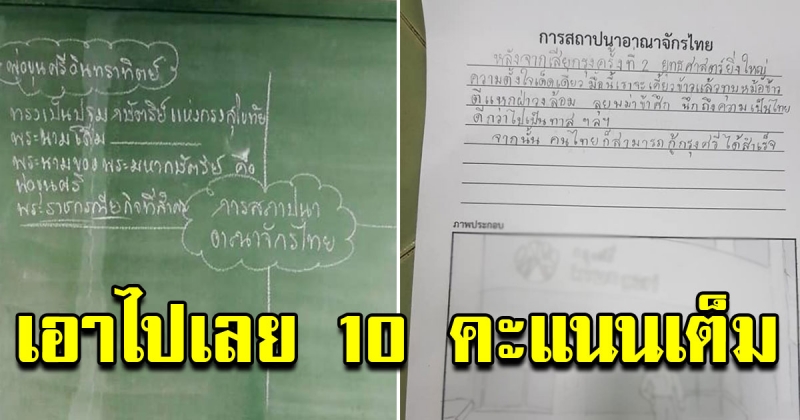 พ่อขุนศรีอินทราทิตย์
ทรงเป็นปฐมกษัตริย์แห่งกรุงสุโขทัย
พระนามเดิม
พระนามของพระมหากษัตริย์ คือ
พ่อขุนศรี
พระราชกรณียกิจที่สำคัญ
การสถาปนา
อาณาจักรไทย
การสถาปนาอาณาจักรไทย
หลังจากเสียกรุงครั้งที่ 2 ยุทธศาสตร์ยิ่งใหญ่
ความตั้งใจเด็ดเดี่ยว มื้อนี้เราจะเคี้ยวข้าวแล้วทุบหม้อข้าว
ตีแหกฝ่าวงล้อม ลุยพม่าข้าศึก นึกถึงความเป็นไทย
ดีกว่าไปเป็นทาส ฯลฯ
จากนั้น คนไทยก็สามารถกู้กรุงศรีได้สำเร็จ
ภาพประกอบ
เอาไปเลย 10 คะแนนเต็ม